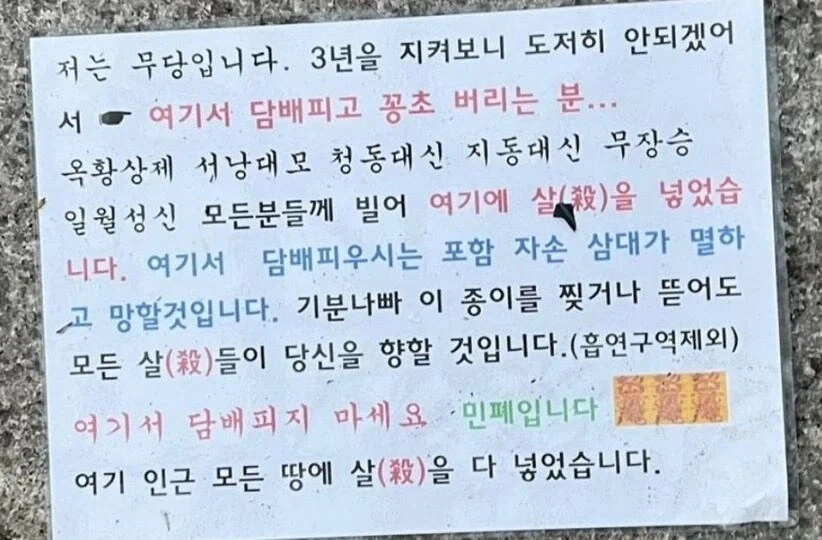 저는 무당입니다. 3년을 지켜보니 도저히 안되겠어
서 ☛ 여기서 담배피고 꽁초 버리는 분...
옥황상제 서낭대모 청동대신 지동대신 무장승
일월성신 모든분들께 빌어 여기에 살(殺)을 넣었습
니다. 여기서 담배피우시는 포함 자손 삼대가 멸하
고 망할것입니다. 기분나빠 이 종이를 찢거나 뜯어도
모든 살(殺)들이 당신을 향할 것입니다.(흡연구역제외)
여기서 담배피지 마세요 민폐입니다
여기 인근 모든 땅에 살(殺)을 다 넣었습니다.